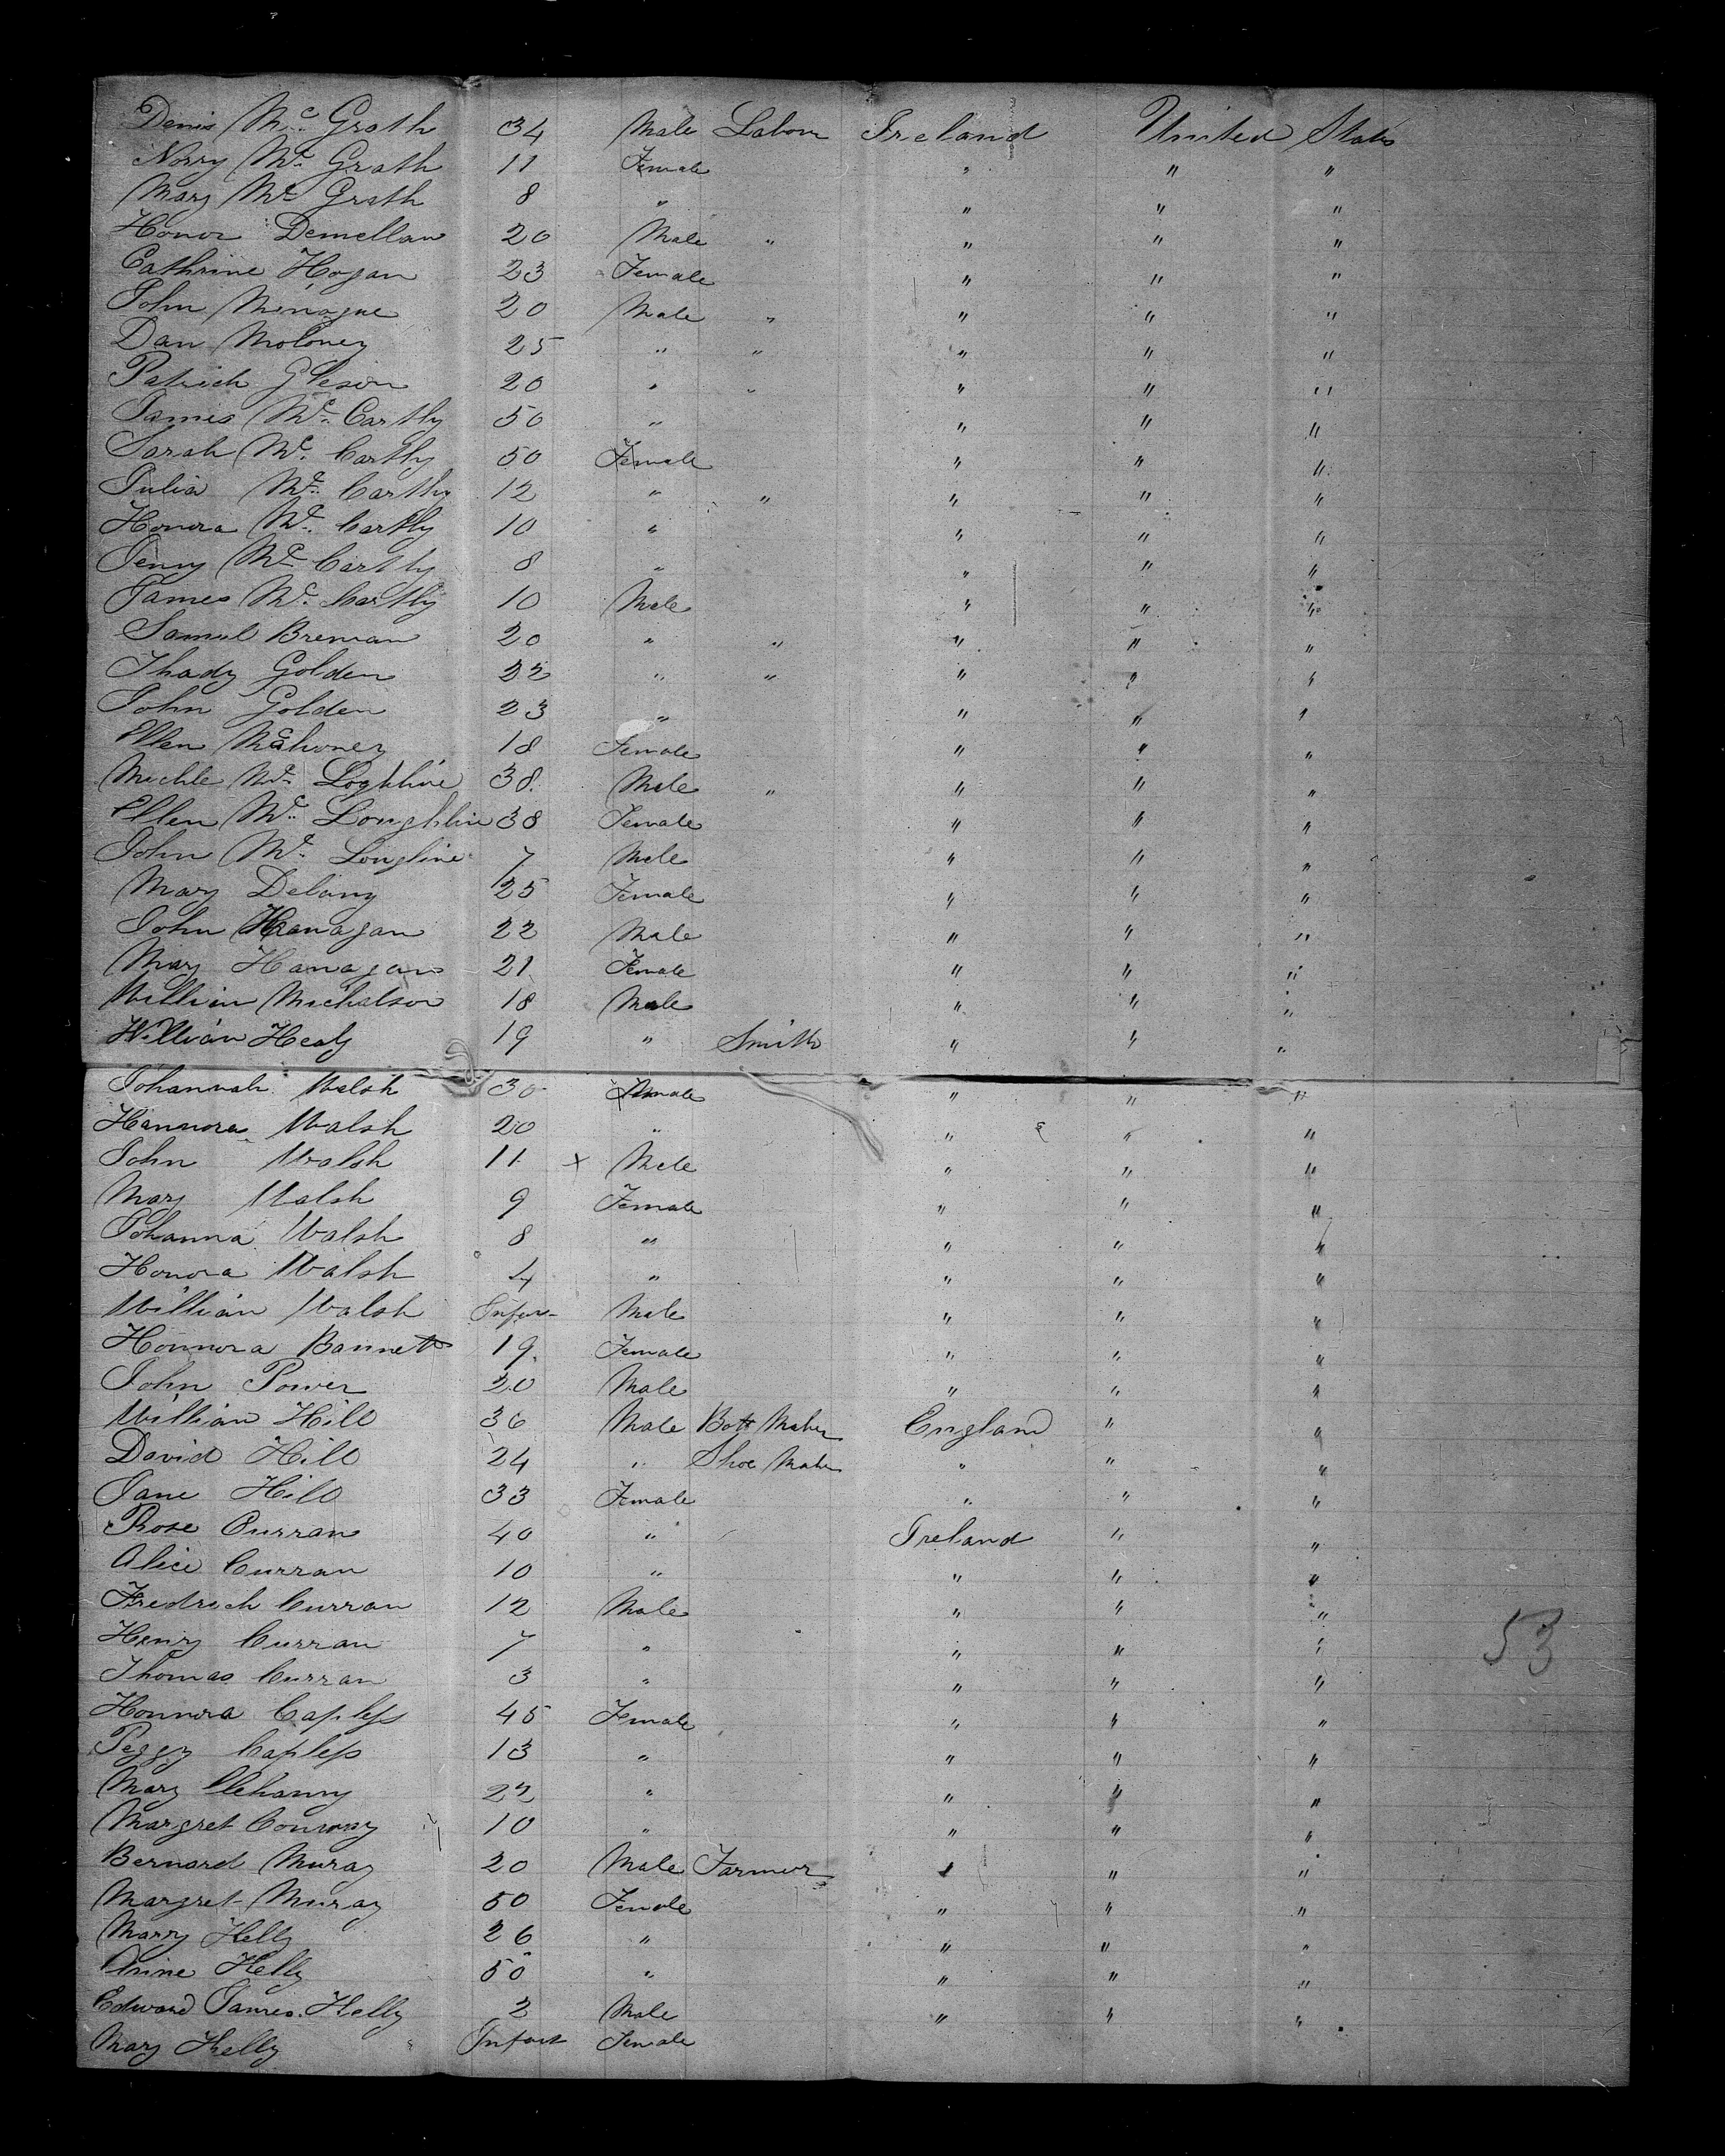 Denis Mc. Grath 34 Male Labour Ireland United States
Norry Mc. Grath 11 Female " " "
Mary Mc Grath 8 " " " "
Honor 20 Male " " " "
Cathrine Hogan 23 Female " " "
John Minogue 20 Male " " " "
Dan Moloney 25 " " " " "
Patrick Gleson 20 " " " " "
James Mc. Carthy 50 " " " "
Sarah Mc. Carthy 50 Female " " "
Julia Mc. Carthy 12 " " " " "
Honora Mc. Carthy 10 " " " "
Jenny Mc Carthy 8 " " " "
James Mc. Carthy 10 Male " " "
Samul Brennan 20 " " " " "
Thady Golden 22 " " " " "
John Golden 23 " " " "
Ellen Mahoney 18 Female " " "
Michle Mc. Loghline 38. Male " " " "
Ellen Mc. Loughline 38 Female " " "
John Mc. Longline 7 Male " " "
Mary Delany 25 Female " " "
John Hanagan 22 Male " " "
Mary Hanagan 21 Female " " "
William Michalson 18 Male " " "
William Healy 19 " Smith " " "
Johannah Walsh 30 Female " " "
Hannora Walsh 20 " " " "
John Walsh 11 x Male " " "
Mary Walsh 9 Female " " "
Johanna Walsh 8 " " " "
Honora Walsh 4 " " " "
William Walsh Male " " "
Honnora Bannett 19. Female " " "
John Power 20 Male " " "
William Hill 36 Male Bott Maker England " "
David Hill 24 " Shoe Maker " " "
Jane Hill 33 Female " " "
Rose Curran 40 " Ireland " "
Alice Curran 10 " " " "
Fredrich Curran 12 Male " " "
Henry Curran 7 " " " "
53
Thomas Curran 3 " " " "
Honnora Capless 45 Female " " "
Peggy Capless 13 " " " "
Mary 22 " " " "
Margret Conway 10 " " " "
Bernard Muray 20 Male Farmer " " "
Margret Muray 50 Female " " "
Marry Kelly 26 " " " "
Anne Kelly 50 " " " "
Edward James. Kelly 2 Male " " "
Mary Kelly Infant Female